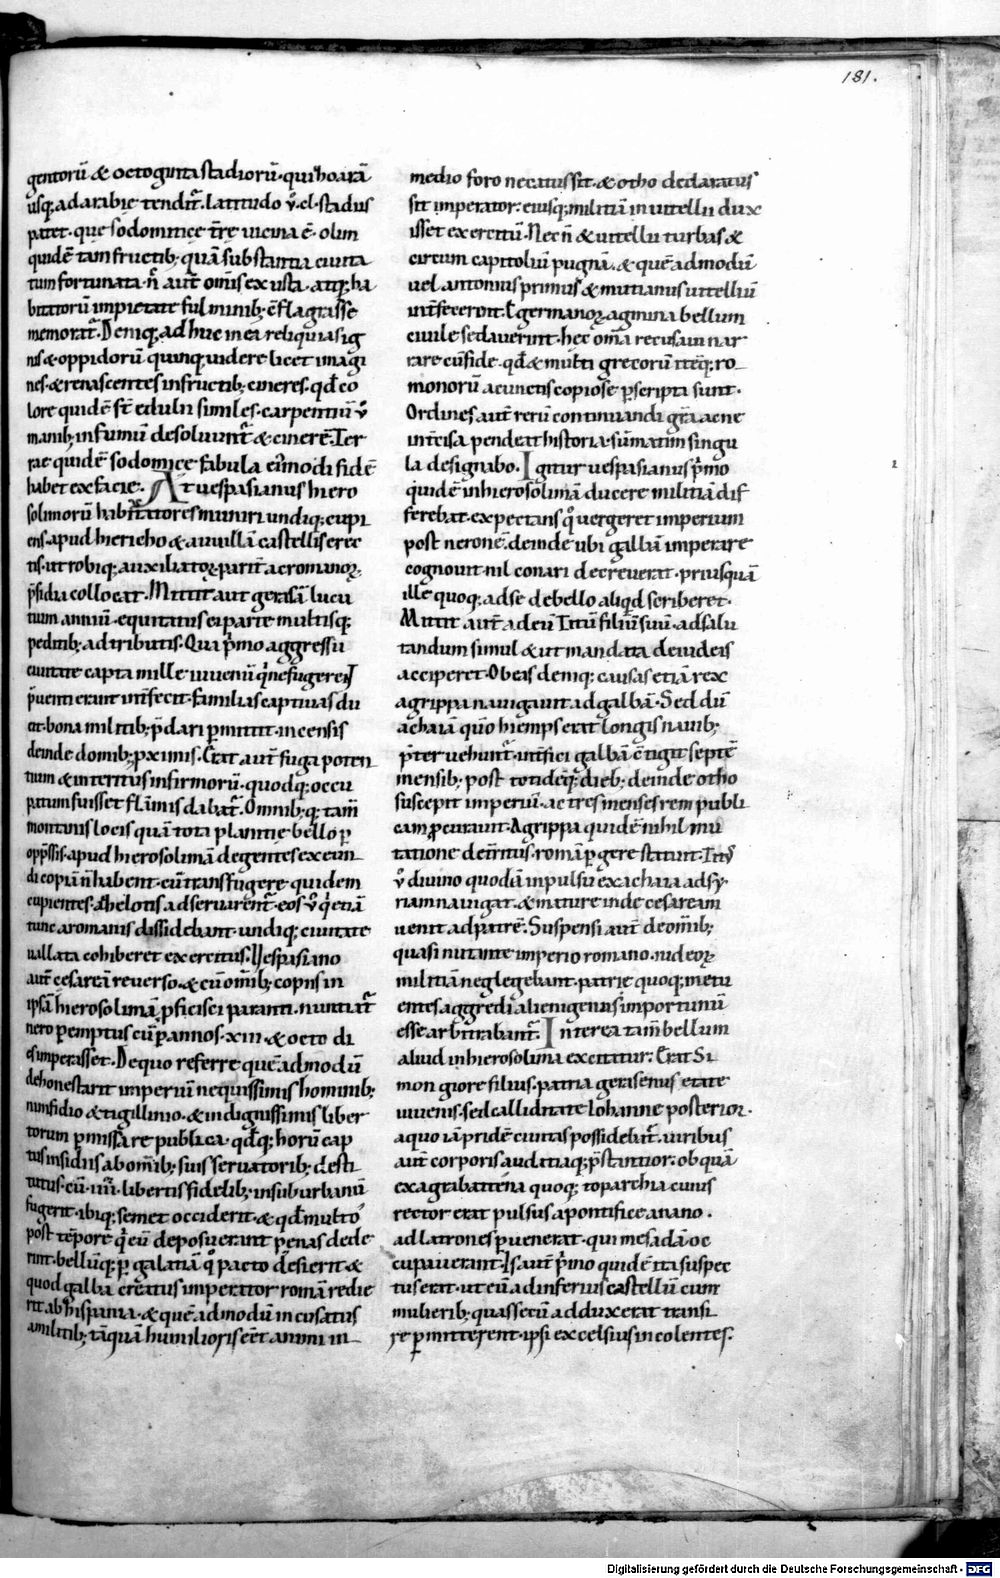 181.
gentorū & octoginta stadiorū. qui hoarā
usq; ad arabie tendit̃. latitudo v̊. cl. stadiis
patet. que sodomitice t̃re uicina ē. olim
quidē tam fructib; quā substantia ciuita
tum fortunata. n̄ aut̃ om̄is exusta. atq; ha
bitatorū impietate fulminib; c̄flagrasse
memorat̃. Deniq; adhuc in ea reliquias ig
nis & oppidorū quinq; uidere licet imagi
nes. & renascentes in fructib; cineres. qd̄ co
lore quidē st̄ edulii similes. carpentiū v̊
manib; in fumū desoluunt̃ & cinerē. Ter
rae quidē sodomitice fabula eiꝰmodi fidē
habet ex facie. At uespasianus hiero
solimorū habitatores muniri undiq; cupi
ens. apud hiericho & auuillā castellis erec
tis. utrobiq; auxiliatoꝝ. parit̃ ac romanoꝝ.
p̄sidia collocat. Mittit aut̃ gerasā lucu
tium anniū. equitatus ei parte multisq;
peditib; adtributis. Qui p̓mo aggressu
ciuitate capta mille iuuenū q̓ ne fugerent
p̄uenti erant int̃fecit. familias captiuas du
cit. bona militib; p̄dari ꝑmittit. incensis
deinde domib; ꝓximis. Erat aut̃ fuga poten
tium & interitus infirmorū. quodq; occu
patum fuisset flāmis dabat̃. Omnib; q; tam̄
montanis locis quā tota planitie bello ꝑ
opp̄ssis. apud hierosolimā degentes exeun
di copiā n̄ habent. cū transfugere quidem
cupientes. a helotis adseruarent̃. eos v̊ q̓ etiā
tunc a romanis dissidebant. undiq; ciuitate
uallata cohiberet exercitus. Uespasiano
aut̃ cesareā reuerso. & cū om̄ib; copiis in
ipsā hierosolimā ꝓficisci paranti. nuntiat̃
nero ꝑemptus cū ꝑ annos. xiii. & octo di
es imperasset. De quo referre quē admodū
dehonestarit imperiū nequissimis hominib;
nimfidio & tigillinio. & indignissimis liber
torum ꝑmissa re publica. qd̄q; horū cap
tus insidiis ab om̄ib; suis seruatorib; desti
tutus. cū. iiii. libertis fidelib; in suburbanū
fugerit. ibiq; semet occiderit. & qd̄ multo
post tēpore q̓ eū deposuerant penas dede
rint. bellūq; ꝑ galatiā q̊ pacto desierit &
quod galba creatus imperator romā redie
rit ab hispania. & quē admodū incusatus
a militib; tāquā humilioris eēt animi in
medio foro necatus sit. & otho declaratus
sit imperator. eiusq; militiā in uitellii dux
isset exercitū. Nec n̄ & uitellii turbas &
circum capitoliū pugnā. & quē admodū
uel antonius primus & mutianus uitelliū
int̃fecerint. & germanoꝝ agmina bellum
ciuile sedauerint. hec om̄a recusaui nar
rare cū fide. qd̄ & multi grecorū itēq; ro
monorū a cunctis copiose ꝑscripta sunt.
Ordines aut̃ rerū continuandi gr̄a ac ne
int̃cisa pendeat historia. sūmatim singu
la designabo. Igitur uespasianus p̓mo
quidē in hierosolimā ducere militiā dif
ferebat. expectans q̊ uergeret imperium
post neronē. deinde ubi galbā imperare
cognouit. nil conari decreuerat. priusquā
ille quoq; ad se de bello aliqd̄ scriberet.
Mittit aut̃ ad eū Titū filiū suū. ad salu
tandum simul & ut mandata de iudeis
acciperet. Ob eas deniq; causas etiā rex
agrippa nauigauit ad galbā. Sed dū
achaiā quō hiemps erat longis nauib;
p̄ter uehunt̃. int̃fici galbā c̄tigit septē
mensib; post totideq; dieb; deinde otho
suscepit imperiū. ac tres menses rem publi
cam ꝓcurauit. Agrippa quidē nihil mu
tatione det̃ritus. romā ꝑgere statuit. Tit̃
v̊ diuino quodā inpulsu ex achaia ad sy.
riam nauigat. & mature inde cesaream
uenit ad patrē. Suspensi aut̃ de om̄ib;
quasi nutante imperio romano. iudeoꝝ
militiā neglegebant. patrie quoq; metu
entes aggredi alienigenas importunū
esse arbitrabant̃. Interea tam̄ bellum
aliud in hierosolima excitatur. Erat Si
mon giore filius. patria gerasenus etate
iuuenis. sed calliditate Iohanne posterior.
a quo iā pridē ciuitas possidebat̃. uiribus
aut̃ corporis audatiaq; p̄stantior. ob quā
ex agrabattena quoq; toparchia cuius
rector erat pulsus a pontifice anano.
ad latrones ꝑuenerat. qui mesadā oc
cupauerant. Is aut̃ p̓mo quidē ita suspec
tus erat. ut eū ad inferius castellū cum
mulierib; quas secū adduxerat transi
re ꝑmitterent. ipsi excelsius incolentes.
Digitalisierung gefördert durch die Deutsche Forschungsgemeinschaft - DFG